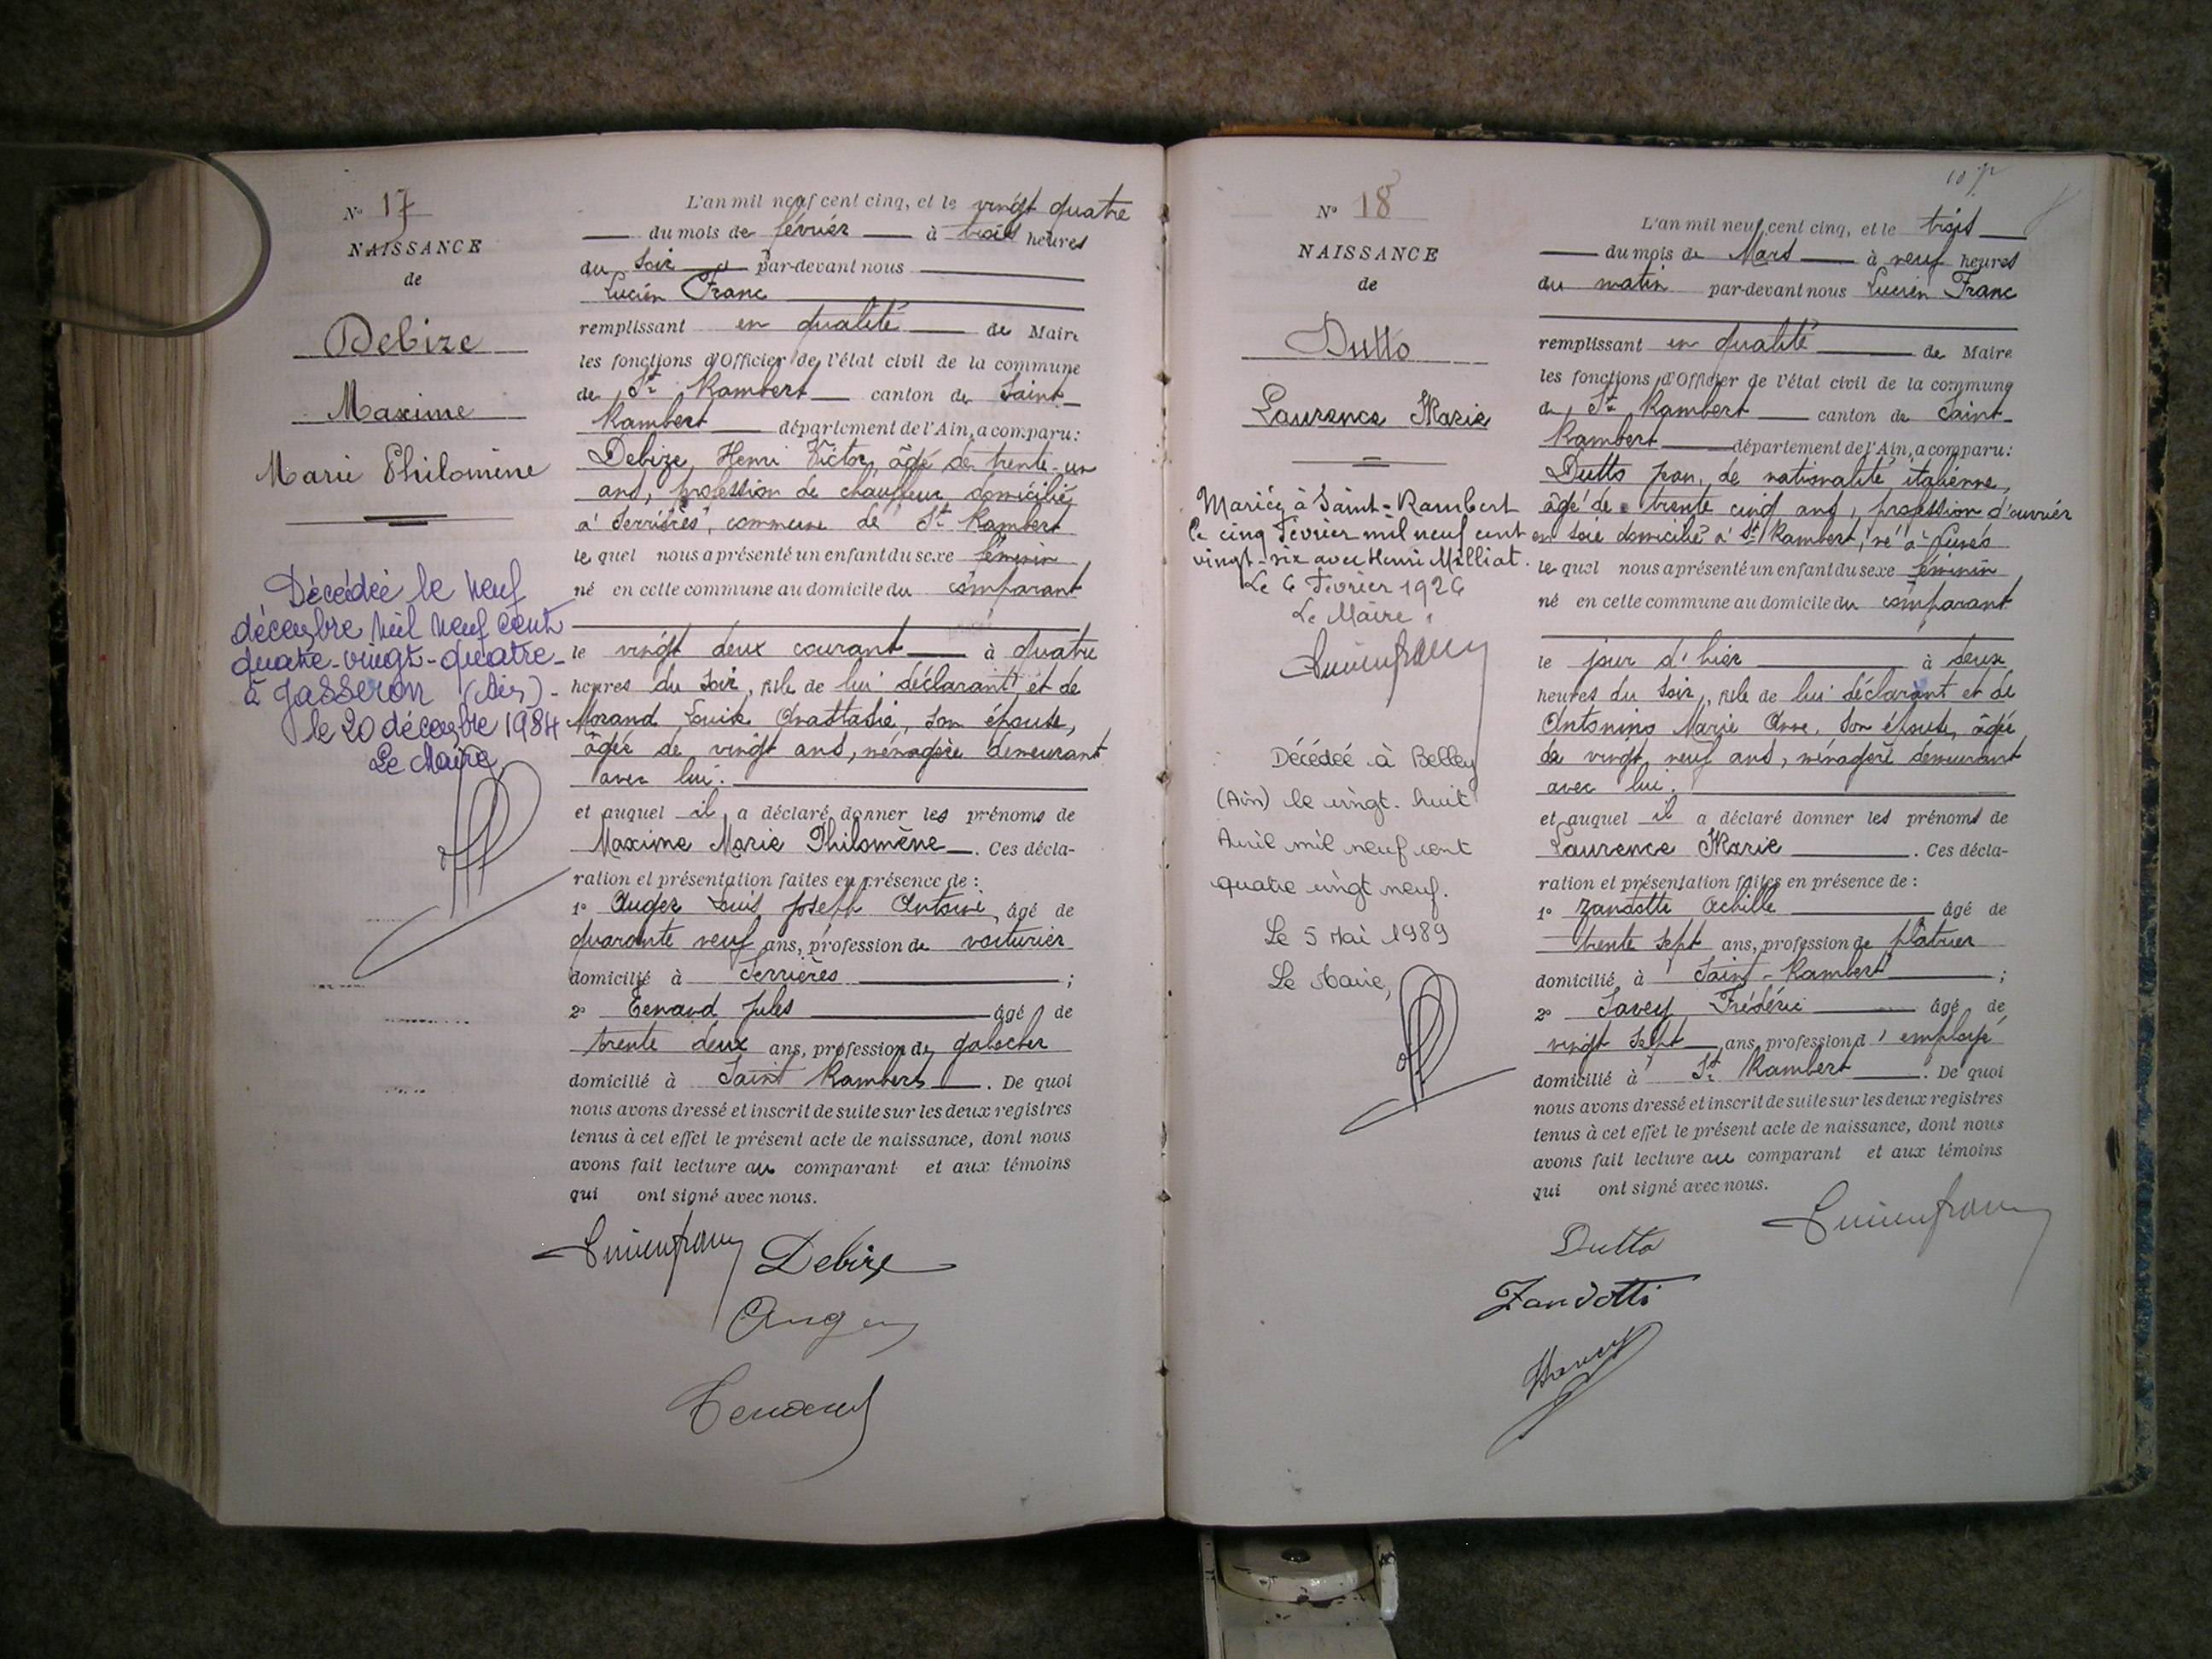 N° 17
NAISSANCE
de
Debize
Maxime
Marie Philomène
Décédée le neuf
décembre mil neuf cent
quatre-vingt-quatre-
à Jasseron (Ain)-
le 20 décembre 1984
Le Maire,
L'an mil neuf cent cinq, et le vingt quatre
du mois de février à trois heures
du soir par-devant nous
Lucien Franc
remplissant en qualité de Maire
les fonctions d'Officier de l'état civil de la commune
de St Rambert canton de Saint-
Rambert département de l'Ain, a comparu:
Debize, Henri Victor, âgé de trente-un
ans, profession de chauffeur, domicilié
à Serrières, commune de St Rambert
le quel nous a présenté un enfant du sexe féminin
né en cette commune au domicile du comparant
le vingt deux courant à quatre
heures du soir, née de lui déclarant, et de
Morand Louise Anastasie, son épouse,
âgée de vingt ans, ménagère demeurant
avec lui.
et auquel il a déclaré donner les prénoms de
Maxime Marie Philomène. Ces décla-
ration et présentation faites en présence de:
1° Auger Louis Joseph Antoine, âgé de
quarante neuf ans, profession de voiturier
domicilié à Serrières ;
2° Tenand Jules âgé de
trente deux ans, profession de galocher
domicilié à Saint Rambert. De quoi
nous avons dressé et inscrit de suite sur les deux registres
tenus à cet effet le présent acte de naissance, dont nous
avons fait lecture au comparant et aux témoins
qui ont signé avec nous.
Lucien franc Debize
Auger
Tenand
107
N° 18
NAISSANCE
de
Dutto
Laurence Marie
Mariée à Saint-Rambert
le cinq Février mil neuf cent
vingt-six avec Henri Milliat.
Le 6 Février 1926
Le Maire
Lucien franc
Décédée à Belley
(Ain) le vingt. huit
Avril mil neuf cent
quatre vingt neuf.
Le 5 Mai 1989
Le Maire,
L'an mil neuf cent cinq, et le trois
du mois de Mars à neuf heures
du matin par-devant nous Lucien Franc
remplissant en qualité de Maire
les fonctions d'Officier de l'état civil de la commune
de St Rambert canton de Saint-
Rambert département de l'Ain, a comparu:
Dutto Jean, de nationalité italienne,
âgé de trente cinq ans, profession d'ouvrier
en soie domicilié à St Rambert, né à
le quel nous a présenté un enfant du sexe féminin
né en cette commune au domicile du comparant
le jour d'hier à deux
heures du soir, née de lui déclarant et de
Antonino Marie Anne, son épouse, âgée
de vingt neuf ans, ménagère demeurant
avec lui.
et auquel il a déclaré donner les prénoms de
Laurence Marie. Ces décla-
ration et présentation faites en présence de:
1° Zandotti Achille âgé de
trente sept ans, profession de plâtrier
domicilié à Saint-Rambert ;
2° Savey Frédéric âgé de
vingt sept ans, profession d'employé
domicilié à St Rambert. De quoi
nous avons dressé et inscrit de suite sur les deux registres
tenus à cet effet le présent acte de naissance, dont nous
avons fait lecture au comparant et aux témoins
qui ont signé avec nous.
Lucien franc
Dutto
Zandotti
Savey